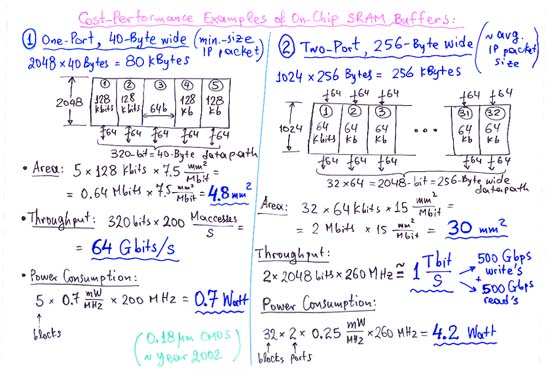 Cost-Performance Examples of On-Chip SRAM Buffers:
① One-Port, 40-Byte wide (min.-size IP packet)
2048 × 40 Bytes = 80 kBytes
① ② ③ ④ ⑤
2048
128 Kbits 128 Kbits 64b 128 kb 128 kb
64 64 64 64 64
320-bit = 40-Byte datapath
• Area: 5 × 128 Kbits × 7.5 mm²/Mbit =
= 0.64 Mbits × 7.5 mm²/Mbit = 4.8 mm²
• Throughput: 320 bits × 200 Maccesses/s =
= 64 Gbits/s
• Power Consumption:
5 × 0.7 mW/MHz × 200 MHz = 0.7 Watt
blocks
(0.18 μm CMOS)
(~ year 2002)
② Two-Port, 256-Byte wide (~ avg. IP packet size)
1024 × 256 Bytes = 256 kBytes
64 64 64 64 64
① ② ③ 31 32
1024
64 Kbits 64 kb 64 kb • • • 64 kb 64 kb
64 64 64 64 64
32×64 = 2048-bit = 256-Byte wide datapath
Area: 32 × 64 Kbits × 15 mm²/Mbit =
= 2 Mbits × 15 mm²/Mbit = 30 mm²
Throughput:
2 × 2048 bits × 260 MHz ≅ 1 Tbit/s
500 Gbps write's
+
500 Gbps read's
Power Consumption:
32 × 2 × 0.25 mW/MHz × 260 MHz = 4.2 Watt
blocks ports